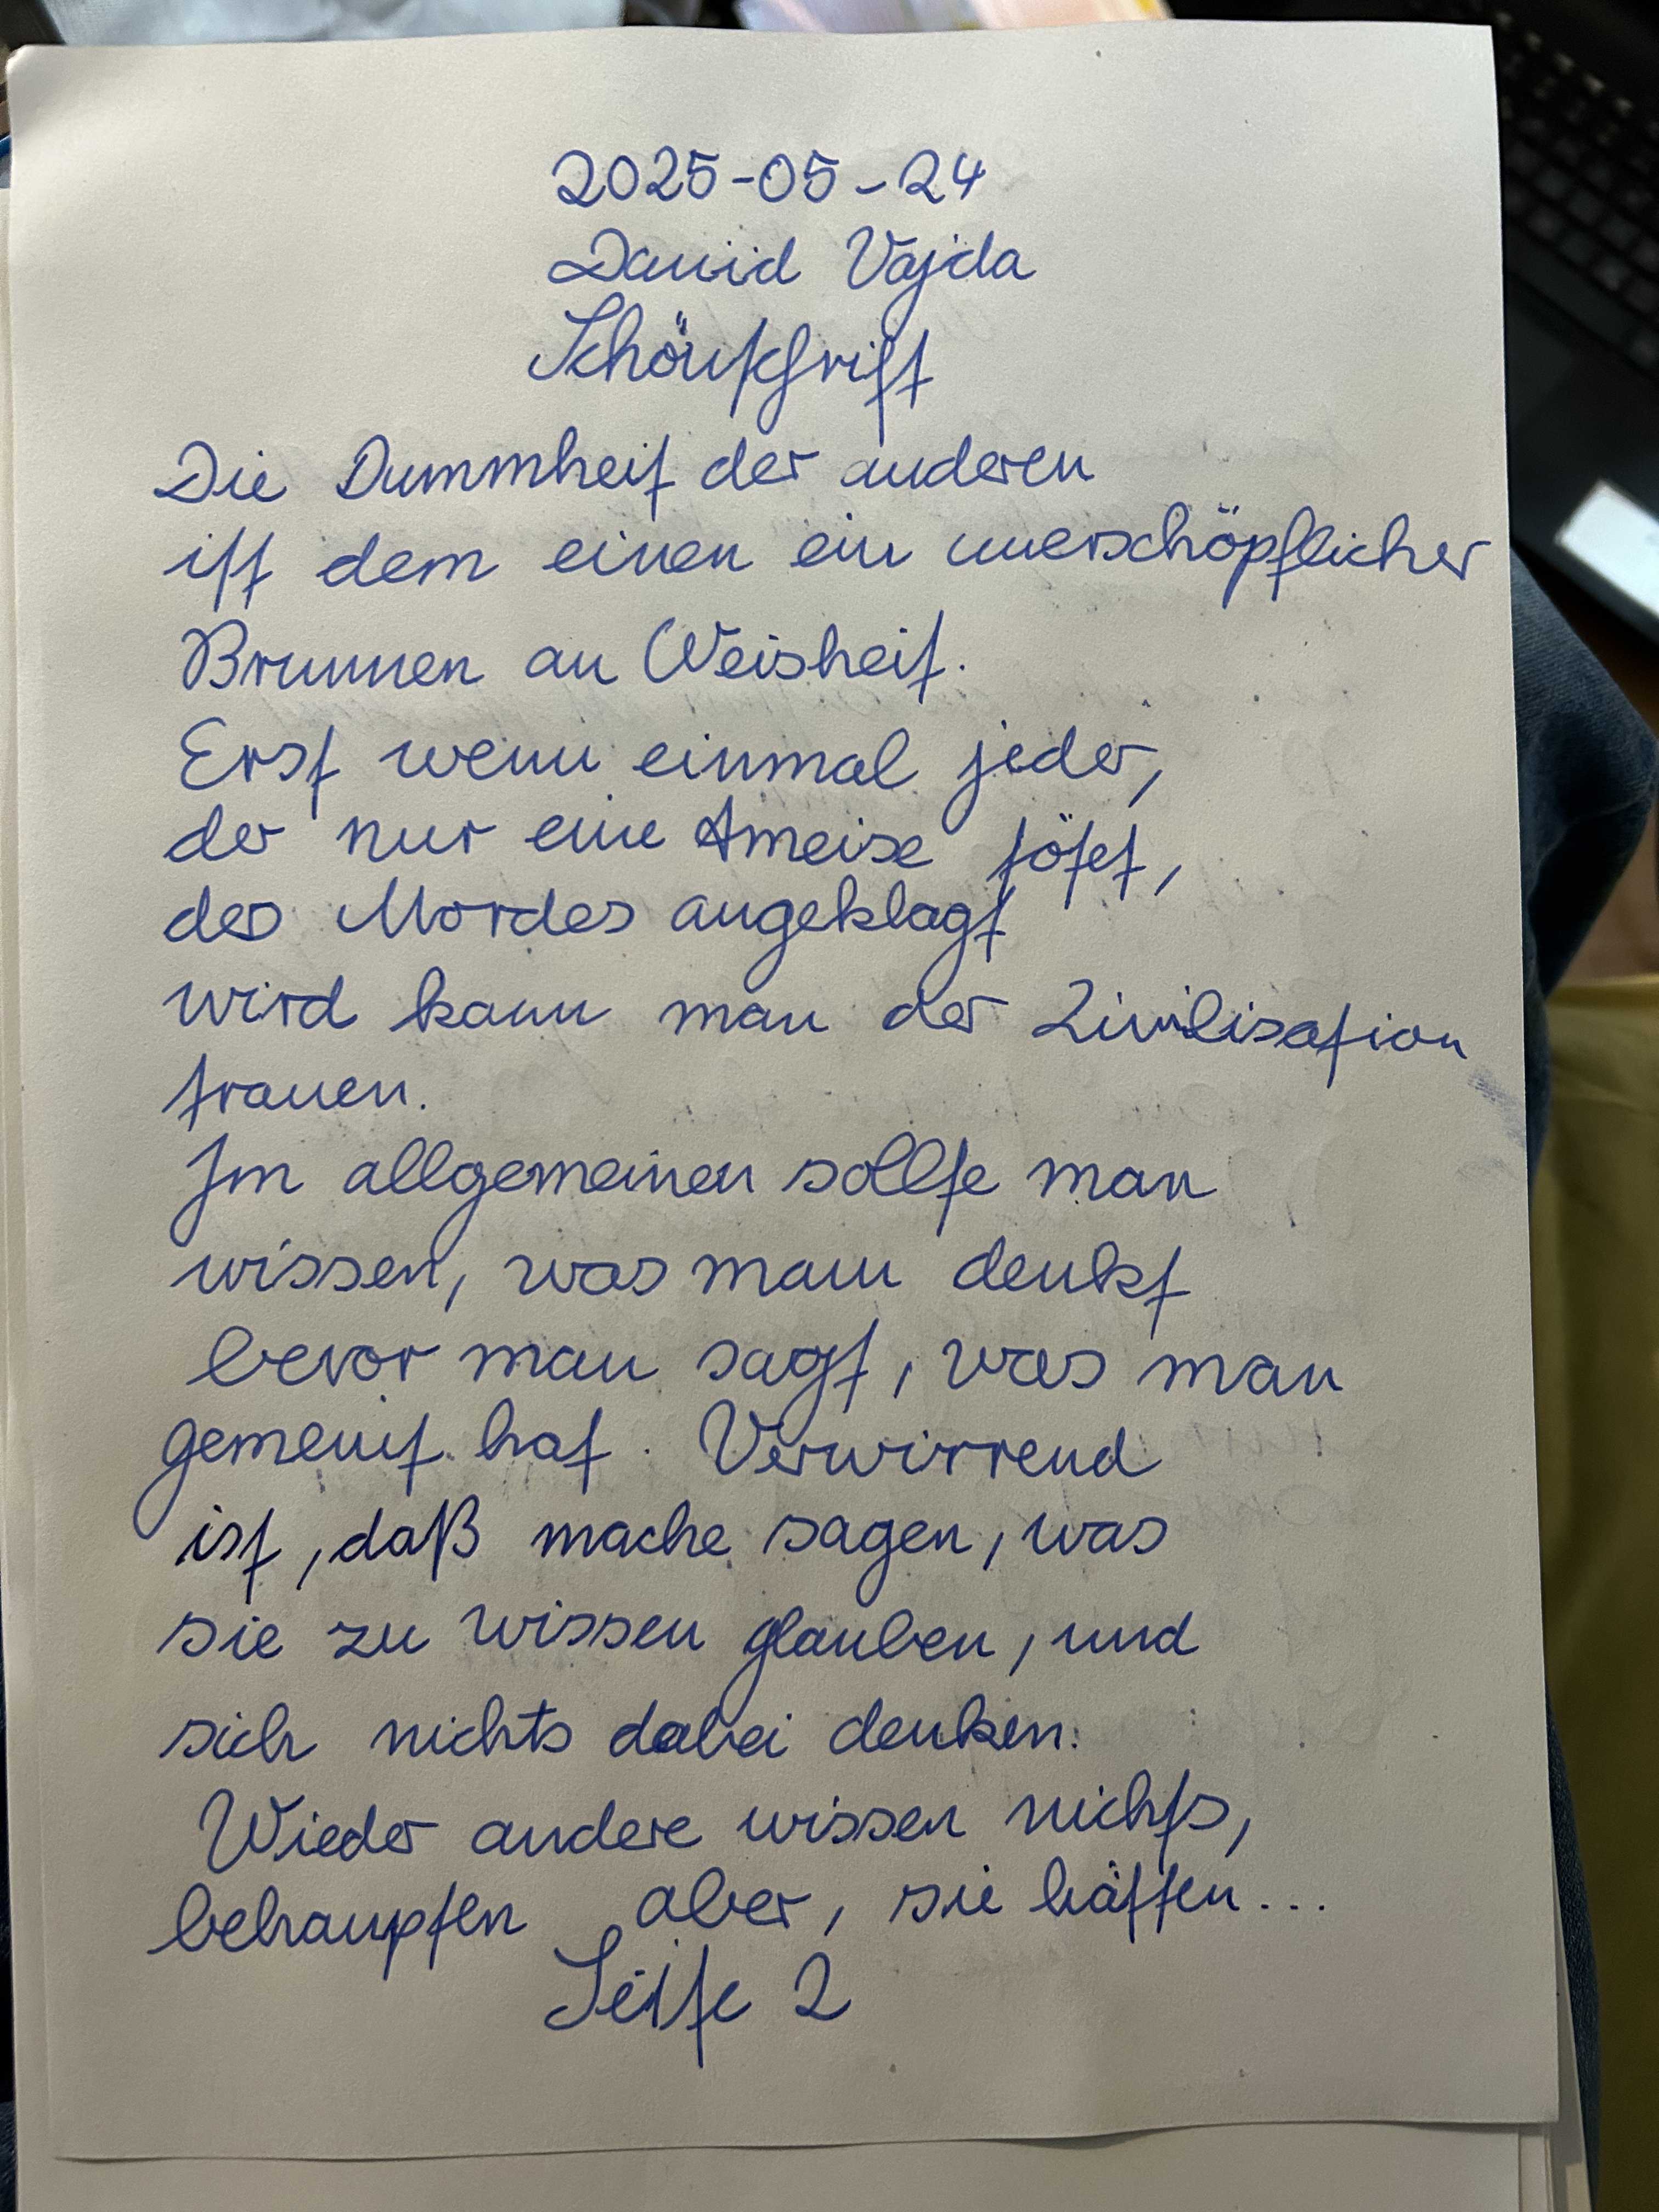 2025-05-24
David Vajda
Schönschrift
Die Dummheit der anderen
ist dem einen ein unerschöpflicher
Brunnen an Weisheit.
Erst wenn einmal jeder,
der nur eine Ameise tötet,
des Mordes angeklagt
wird kann man der Zivilisation
trauen.
Im allgemeinen sollte man
wissen, was man denkt
bevor man sagt, was man
gemeint hat. Verwirrend
ist, daß mache sagen, was
sie zu wissen glauben, und
sich nichts dabei denken.
Wieder andere wissen nichts,
behaupten aber, sie hätten...
Seite 2